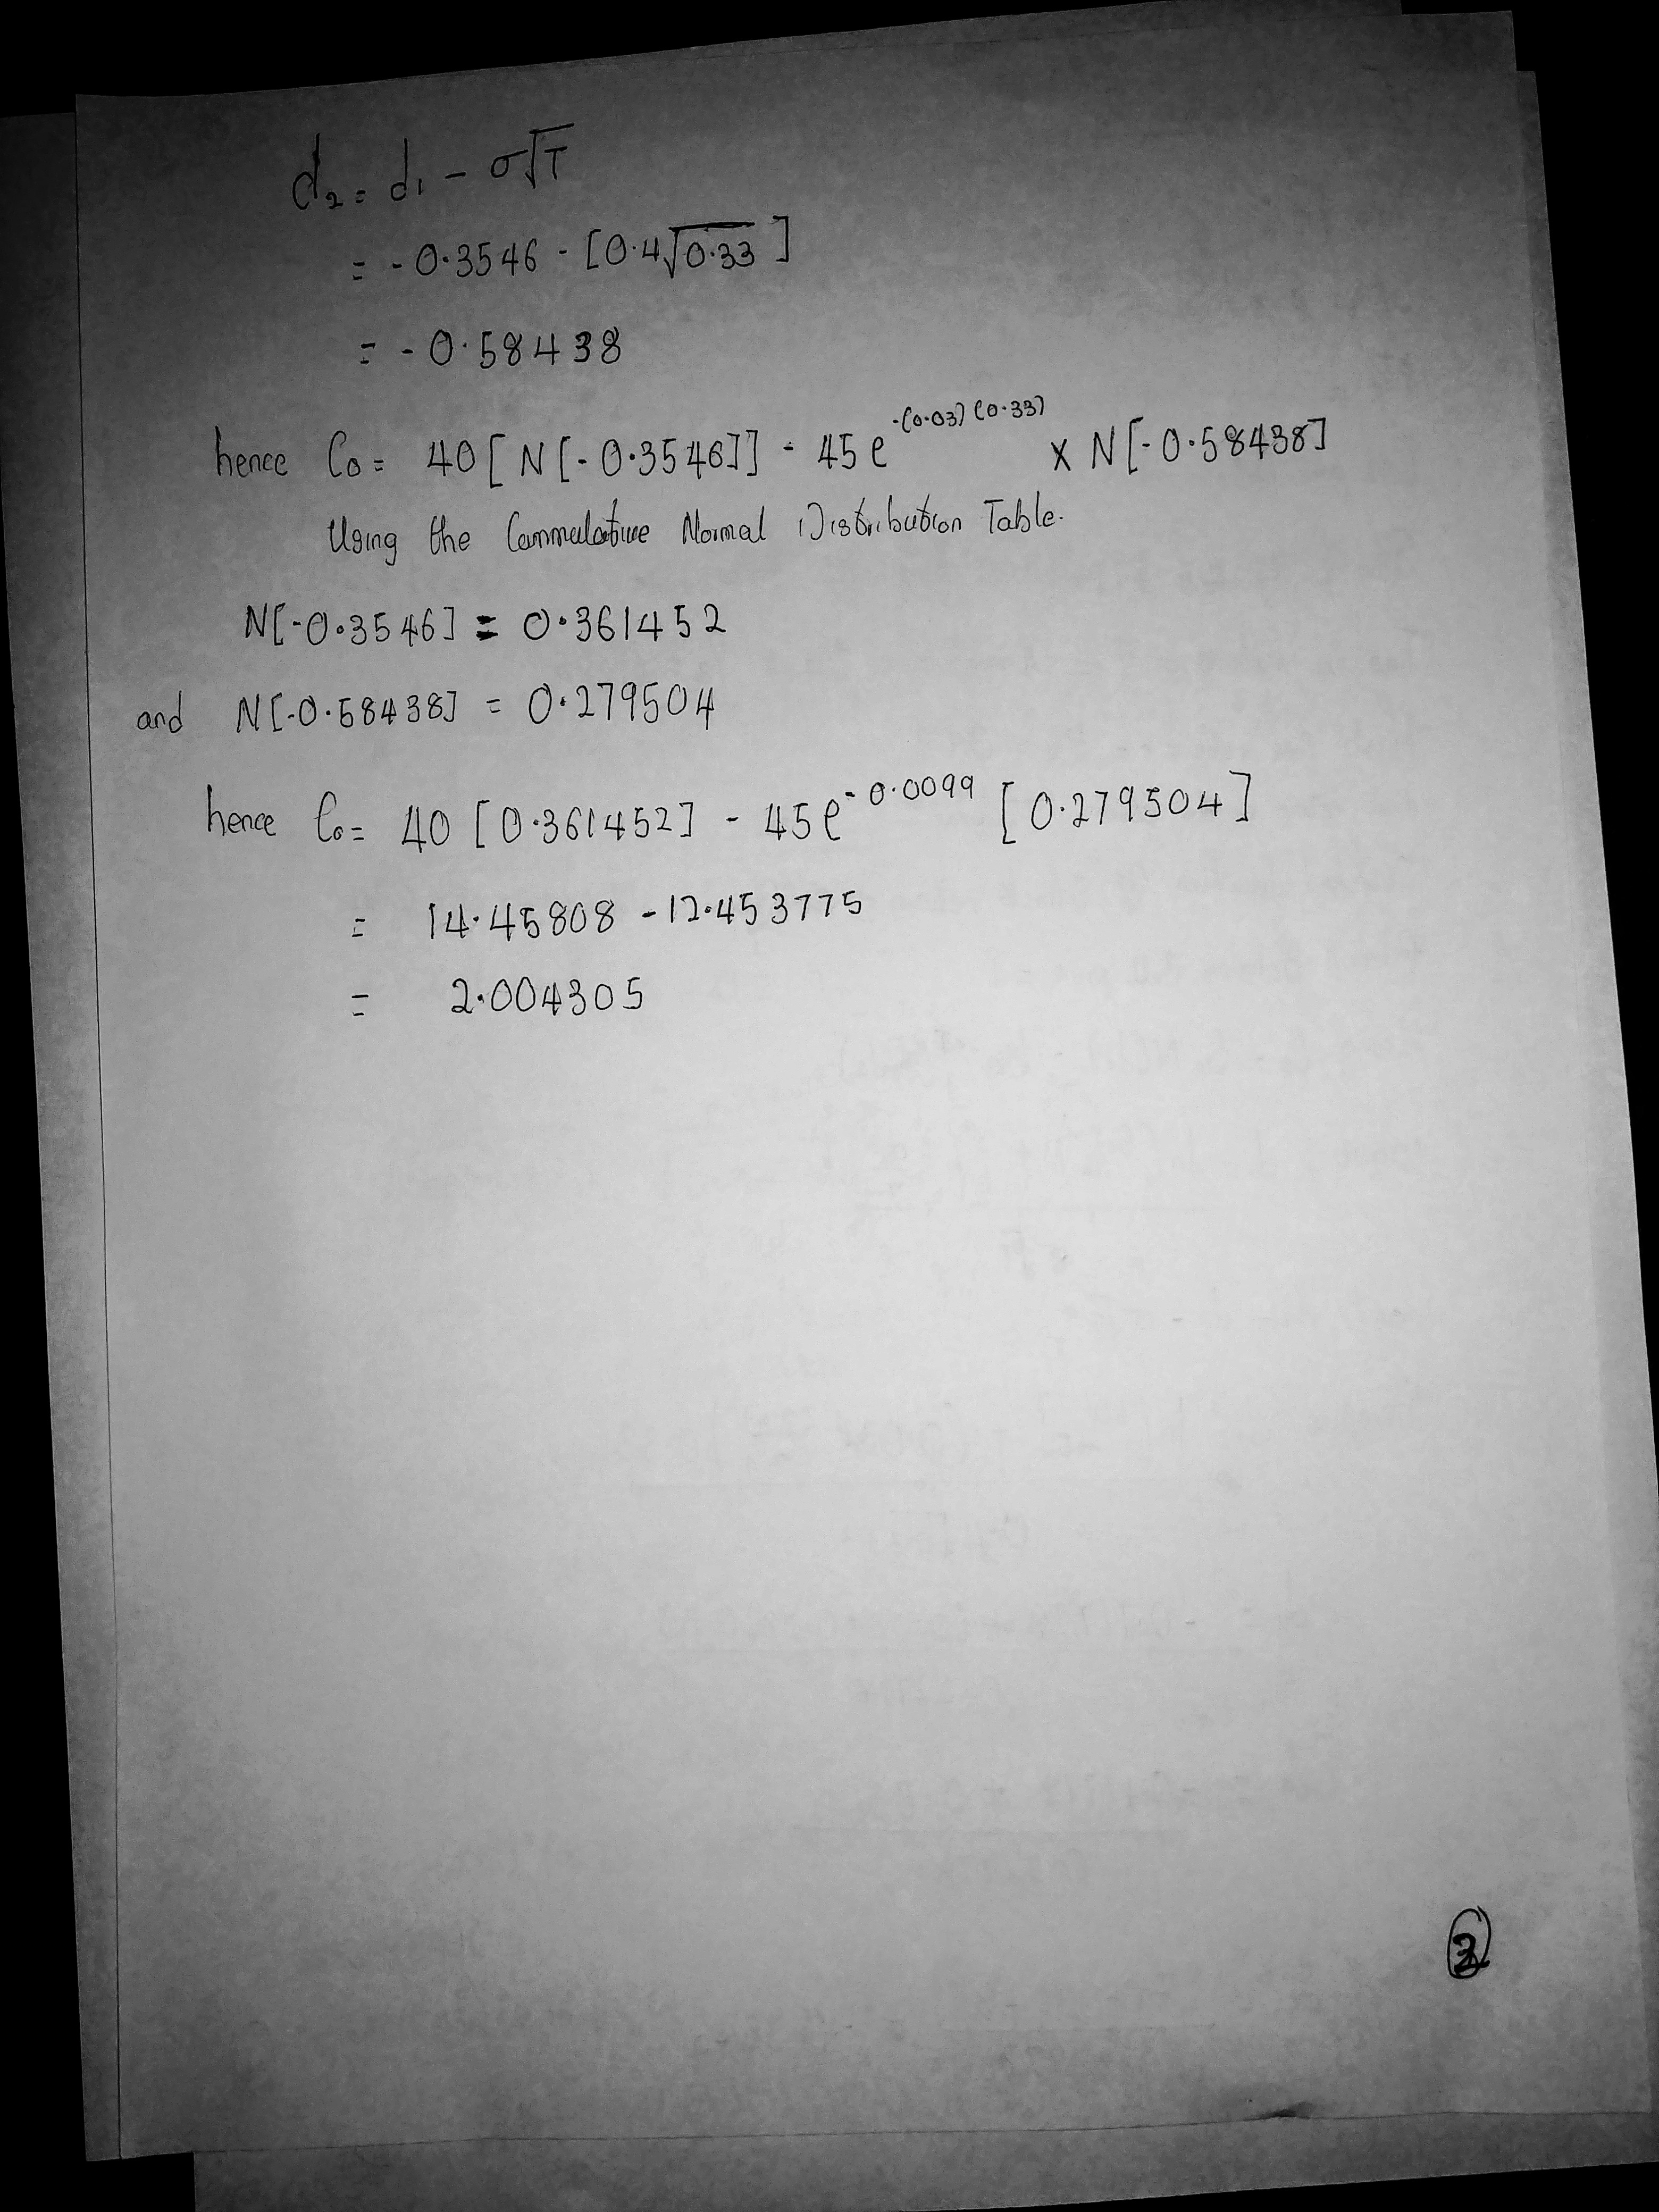 d₂ = d₁ - σ√T
= -0.3546 - [0.4√0.33]
= -0.58438
hence C₀ = 40[N[-0.3546]] - 45e^-(0.03)(0.33) x N[-0.58438]
Using the Cammulative Normal Distribution Table.
N[-0.3546] = 0.361452
and N[-0.58438] = 0.279504
hence C₀ = 40[0.361452] - 45e^-0.0099 [0.279504]
= 14.45808 - 12.453775
= 2.004305